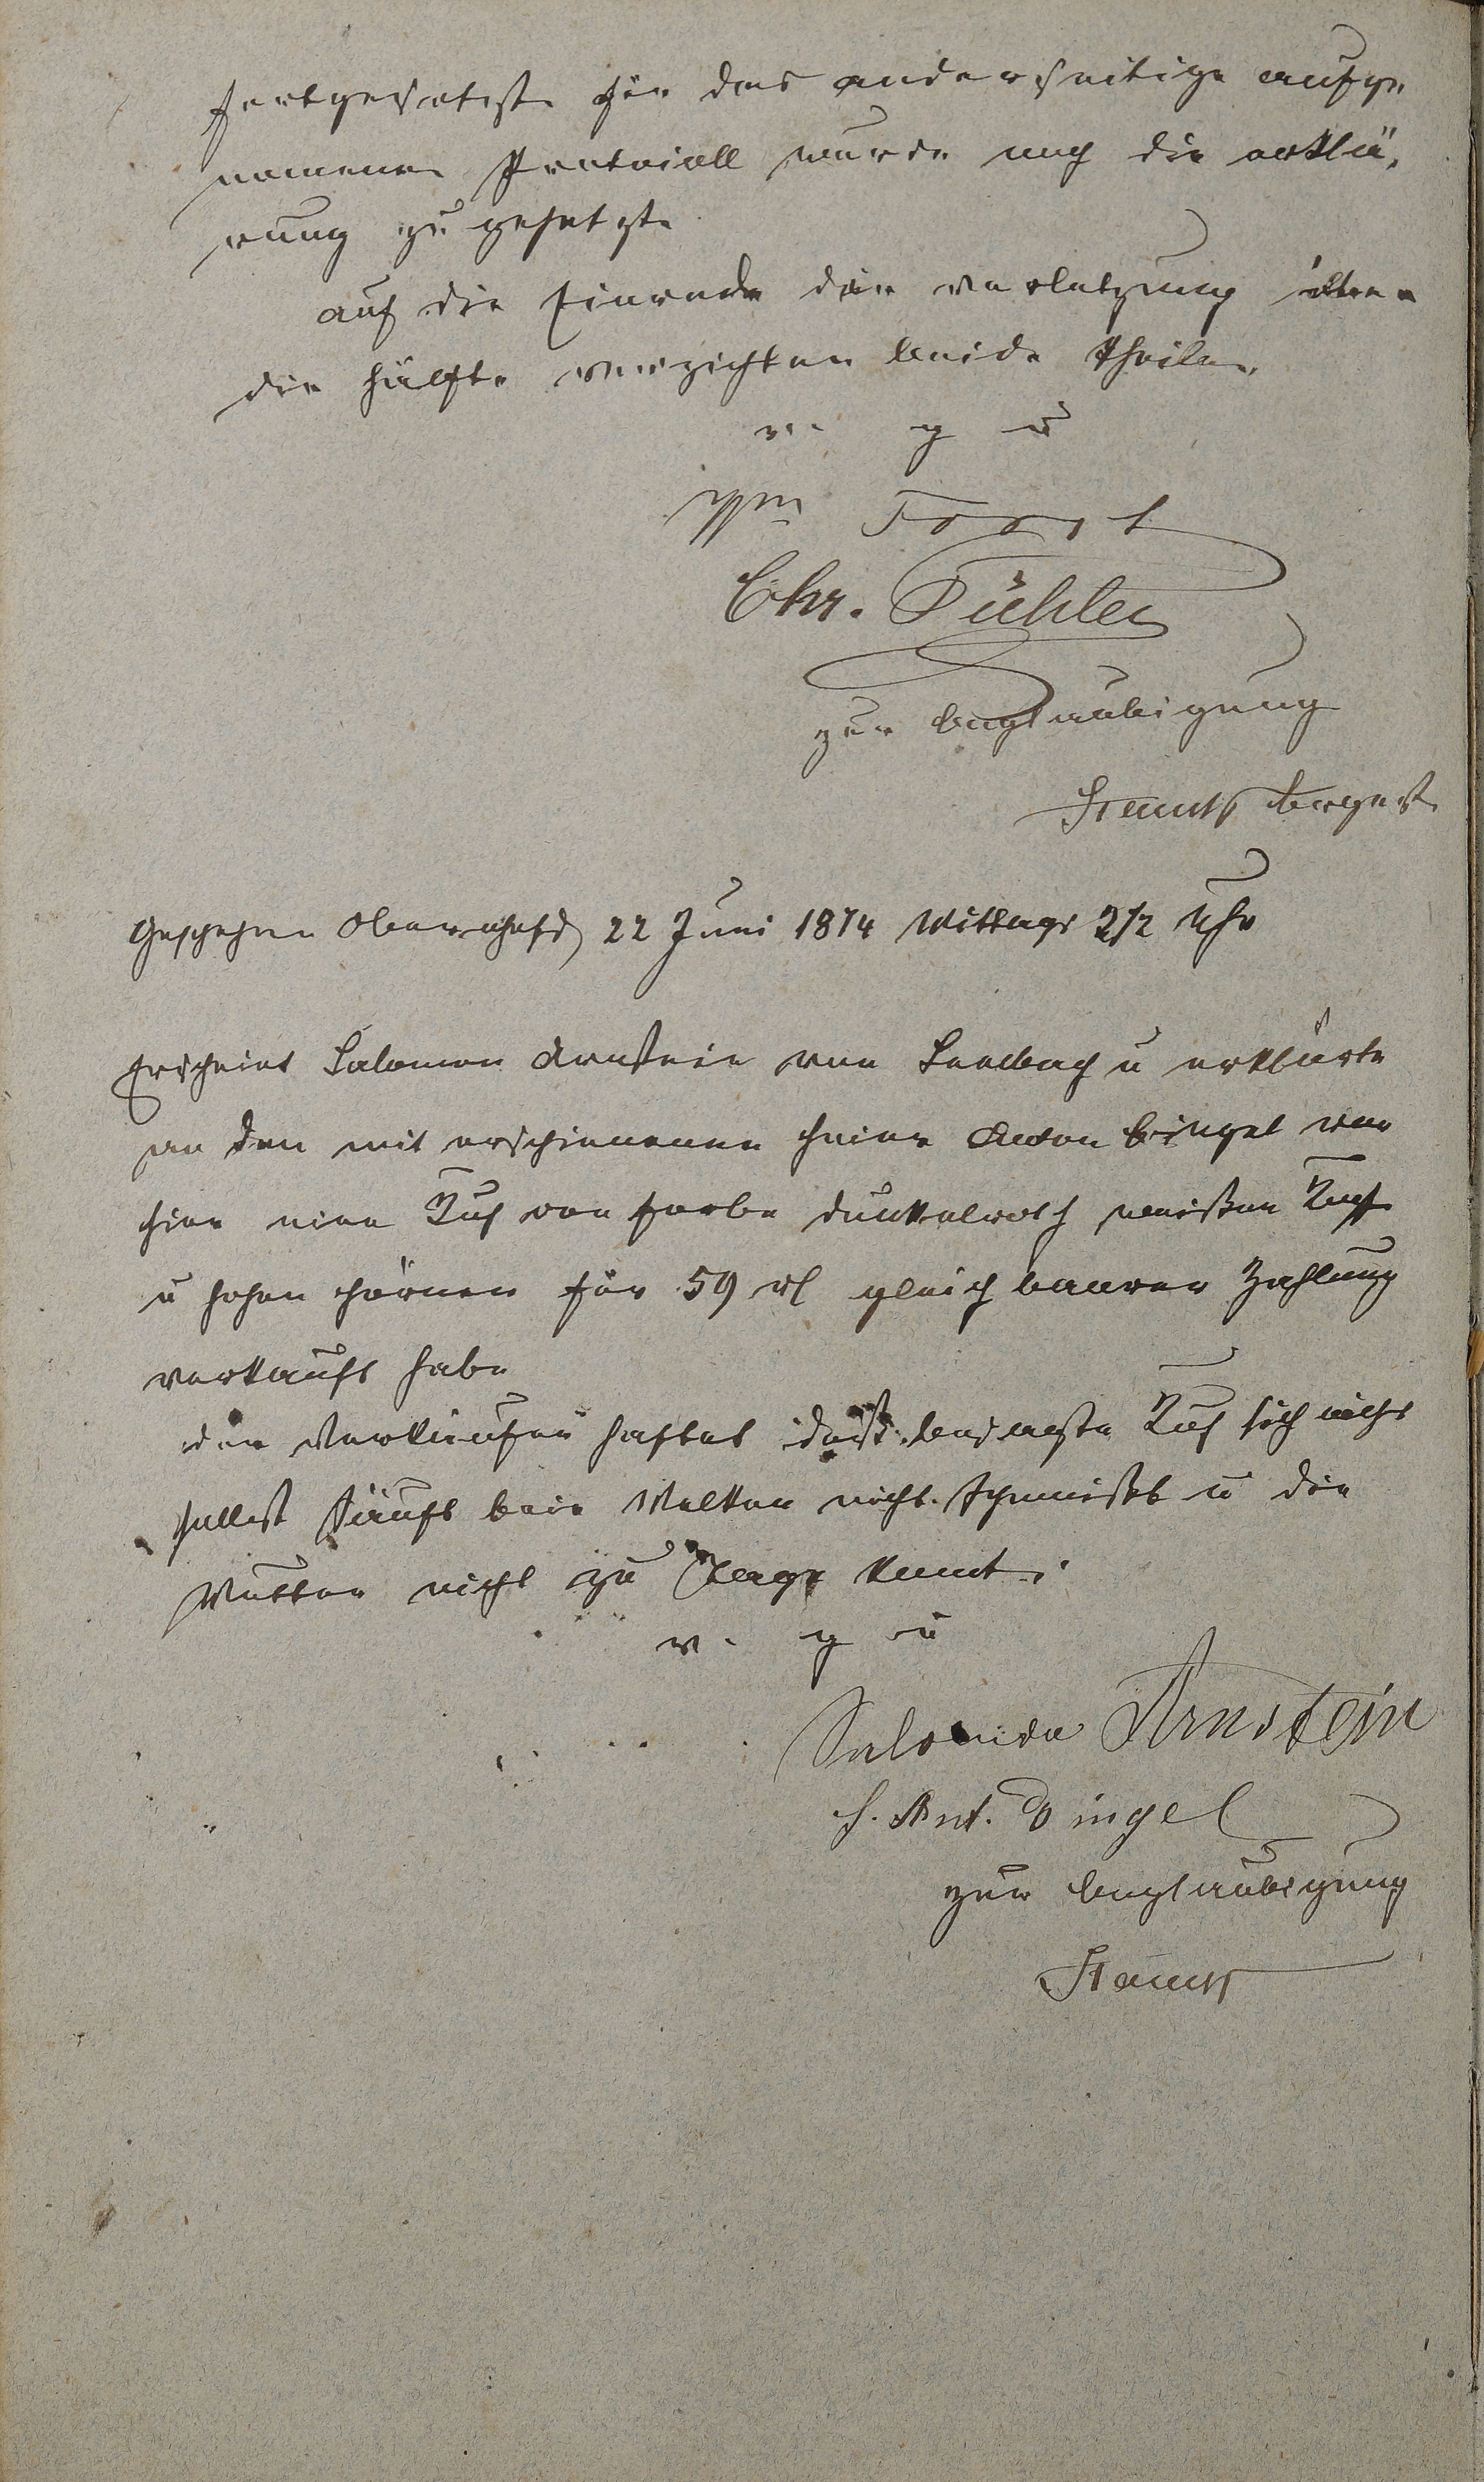 fortgesetzt für das anderseitige aufge
nomene Protocoll wurde noch die erklä,
rung zu gesetzt
auf die Einrede der verletzung über
die hälfte verzichten beide Theile.
v. g u
Forst
Chr. Bühler
zur beglaubigung
Stamts
Geschehen 22 Juni 1874 Mittags 2 1/2 Uhr
Erscheint Salomon Arnstein von Leubach u erklärte
er den mit erschienenen Heinr Anton Dingel von
hier eine Kuh von farbe dunkelroth weißen Kopf
u hohen hörner für 59 rl gleich baarer Zahlung
verkauft habe
der Verkäufer haftet daß besagte Kuh sich nicht
selbst säuft beim Melken nicht schmeißt u die
Mutter nicht zu Tage kemt.
v. g u
Salomon Arnstein
H. Ant. Dingel
zur beglaubigung
Stamts